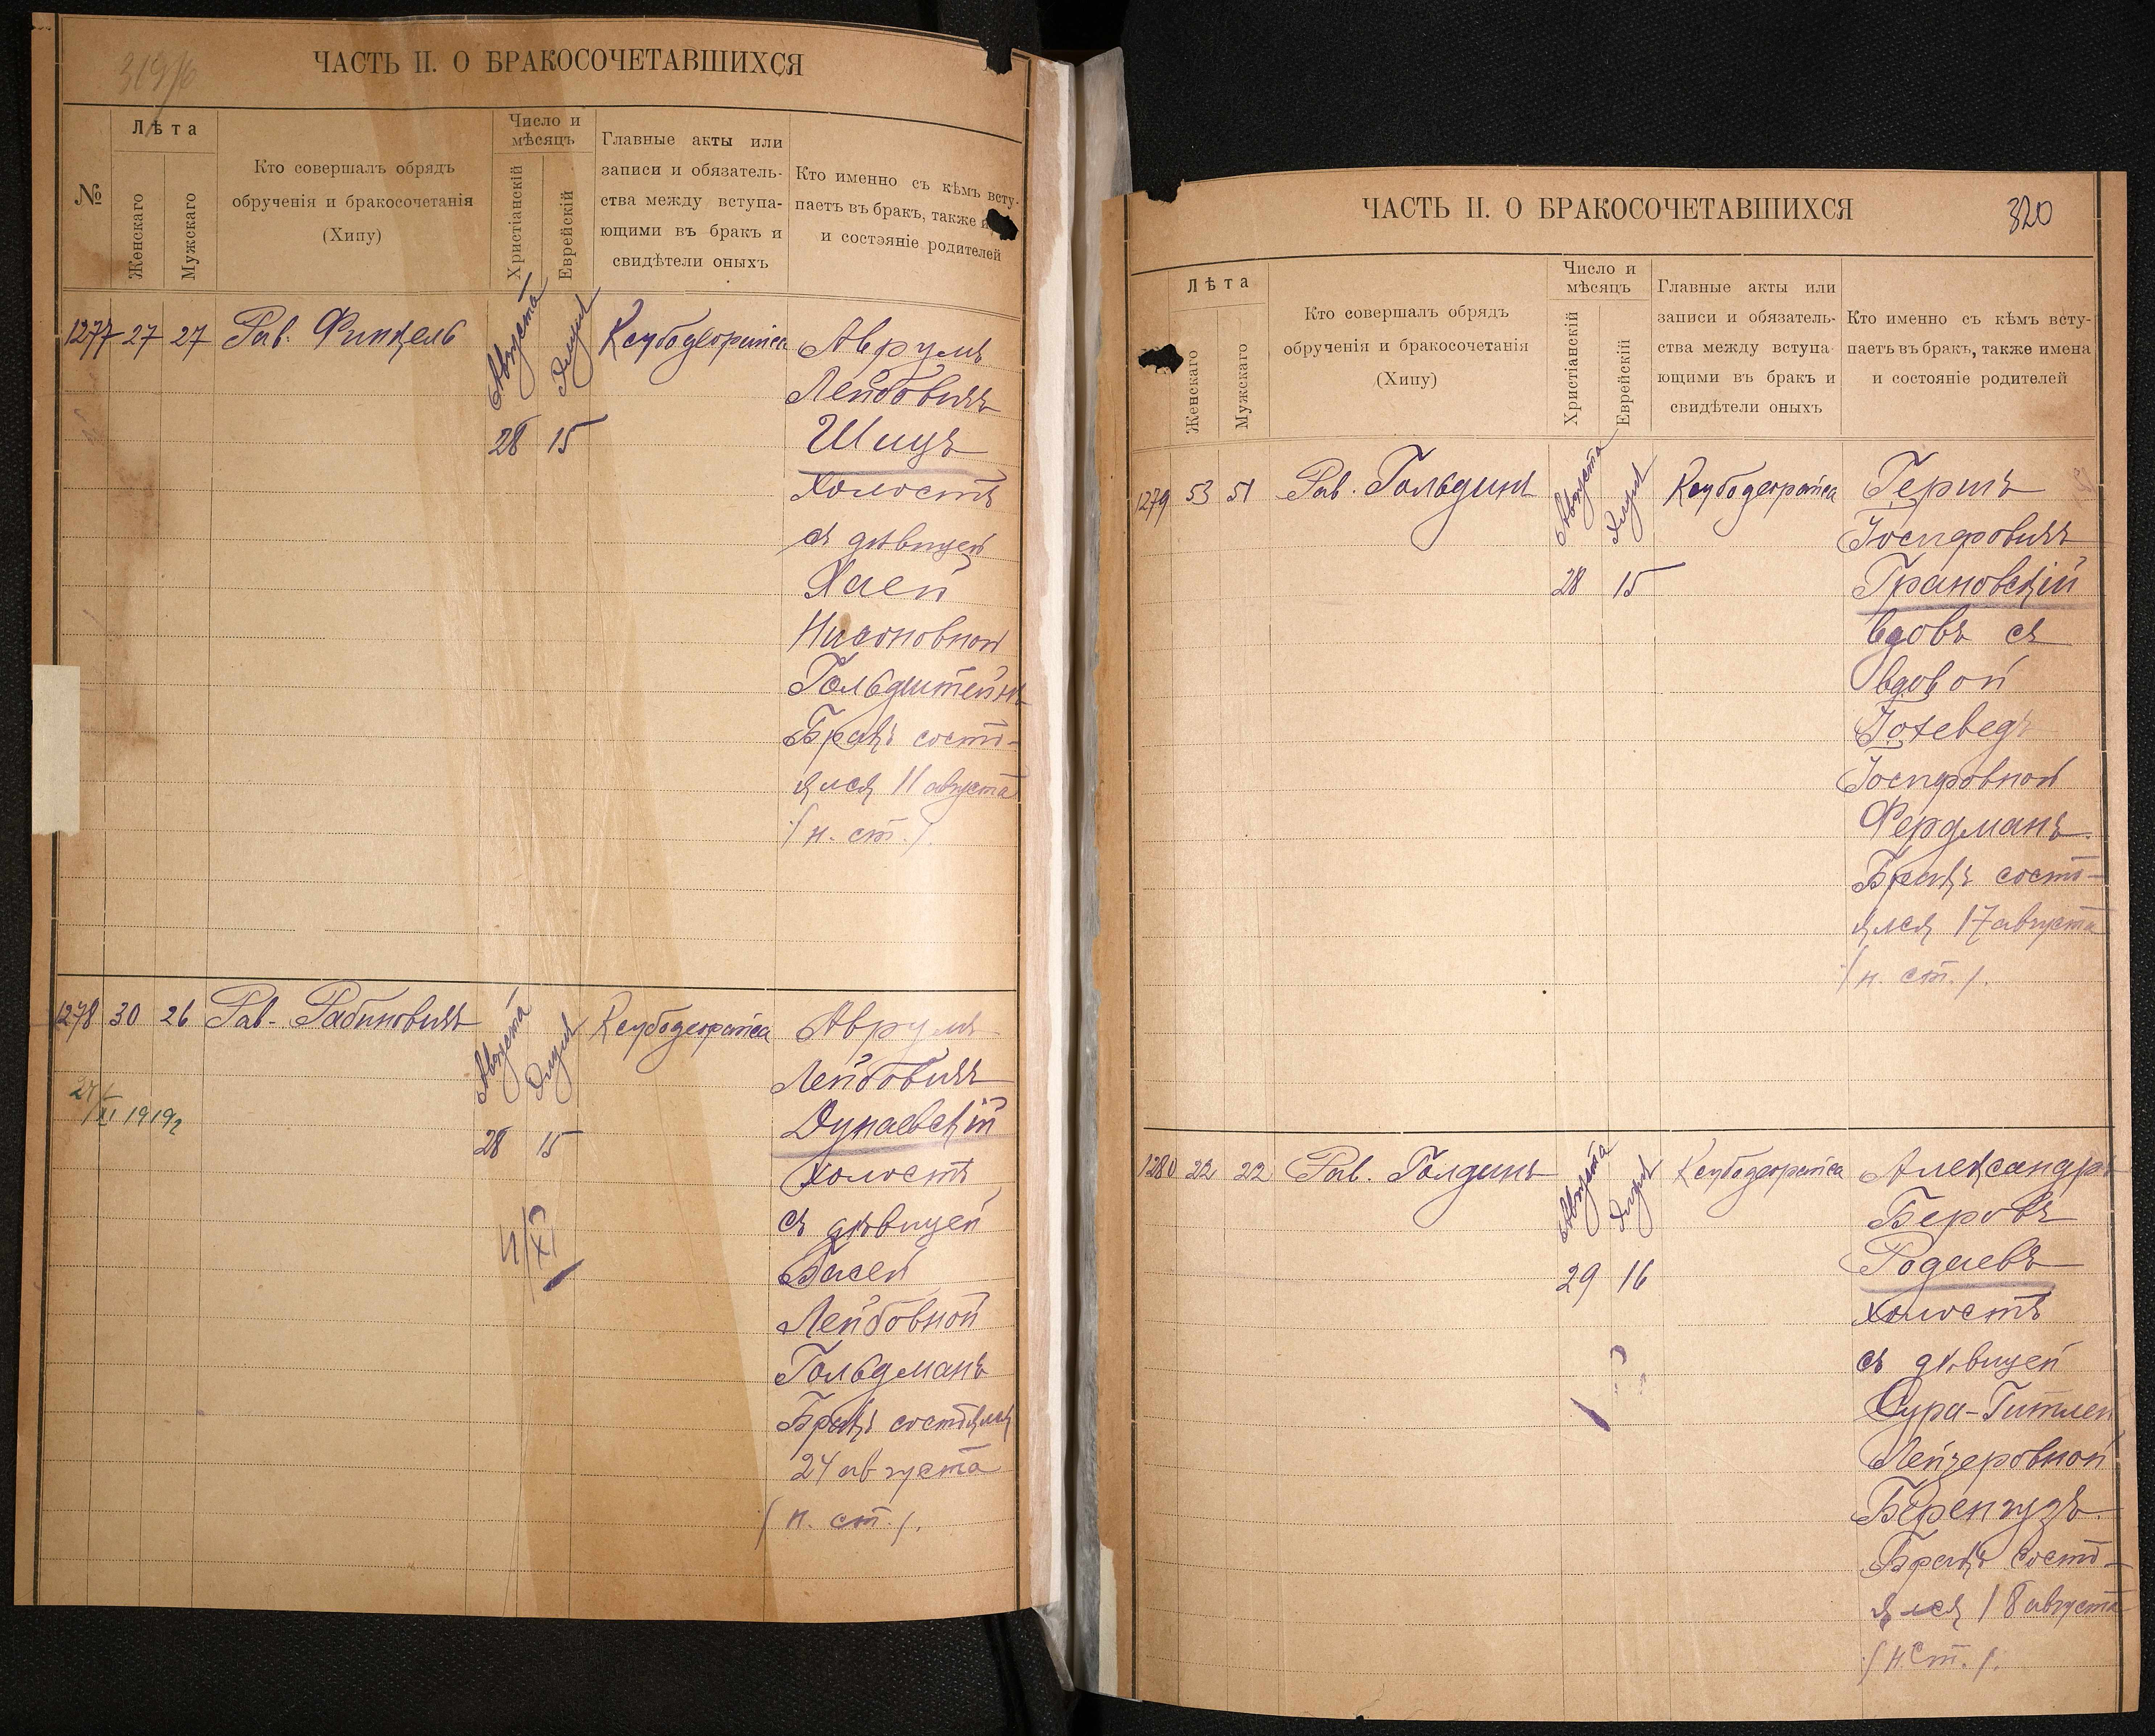 319/6
ЧАСТЬ II. О БРАКОСОЧЕТАВШИХСЯ
№
Лѣта
Женскаго
Мужскаго
Кто совершалъ обрядъ
обрученія и бракосочетанія
(Хипу)
Число и
мѣсяцъ
Христіанскій
Еврейскій
Главные акты или
записи и обязатель-
ства между вступа-
ющими въ бракъ и
свидѣтели оныхъ
Кто именно съ кѣмъ всту-
паетъ въ бракъ, также
и состояніе родителей
1277 27 27 Рав. Финкель
Августа
Элула
28 15
Ксубодеорайса
Аврумъ
Лейбовичъ
Шицъ
Холостъ
съ дѣвицей
Хаей
Нисоновной
Гольдштейнъ
Бракъ состо-
ялся 11 августа
/н. ст./.
1278 30 26 Рав. Рабиновичъ
Августа
Элула
28 15
Ксубодеорайса
Аврумъ
Лейбовичъ
Дунаевскій
Холостъ
съ дѣвицей
Басей
Лейбовной
Гольдманъ
Бракъ состоялся
24 августа
/н. ст./.
XI 1919
XI
ЧАСТЬ II. О БРАКОСОЧЕТАВШИХСЯ
320
Лѣта
Женскаго
Мужскаго
Кто совершалъ обрядъ
обрученія и бракосочетанія
(Хипу)
Число и
мѣсяцъ
Христіанскій
Еврейскій
Главные акты или
записи и обязатель-
ства между вступа-
ющими въ бракъ и
свидѣтели оныхъ
Кто именно съ кѣмъ всту-
паетъ въ бракъ, также имена
и состояніе родителей
1279 53 51 Рав. Гольдинъ
Августа
Элула
28 15
Ксубодеорайса
Гершъ
Іосифовичъ
Грановскій
вдовъ съ
вдовой
Іохеведъ
Іосифовной
Фердманъ
Бракъ состо-
ялся 17 августа
/н. ст./.
1280 22 22 Рав. Голдинъ
Августа
Элула
29 16
Ксубодеорайса
Александръ
Беровъ
Родаевъ
холостъ
съ дѣвицей
Сура-Гитлей
Лейзеровной
Беренгузъ
Бракъ состо-
ялся 18 августа
/н ст./.